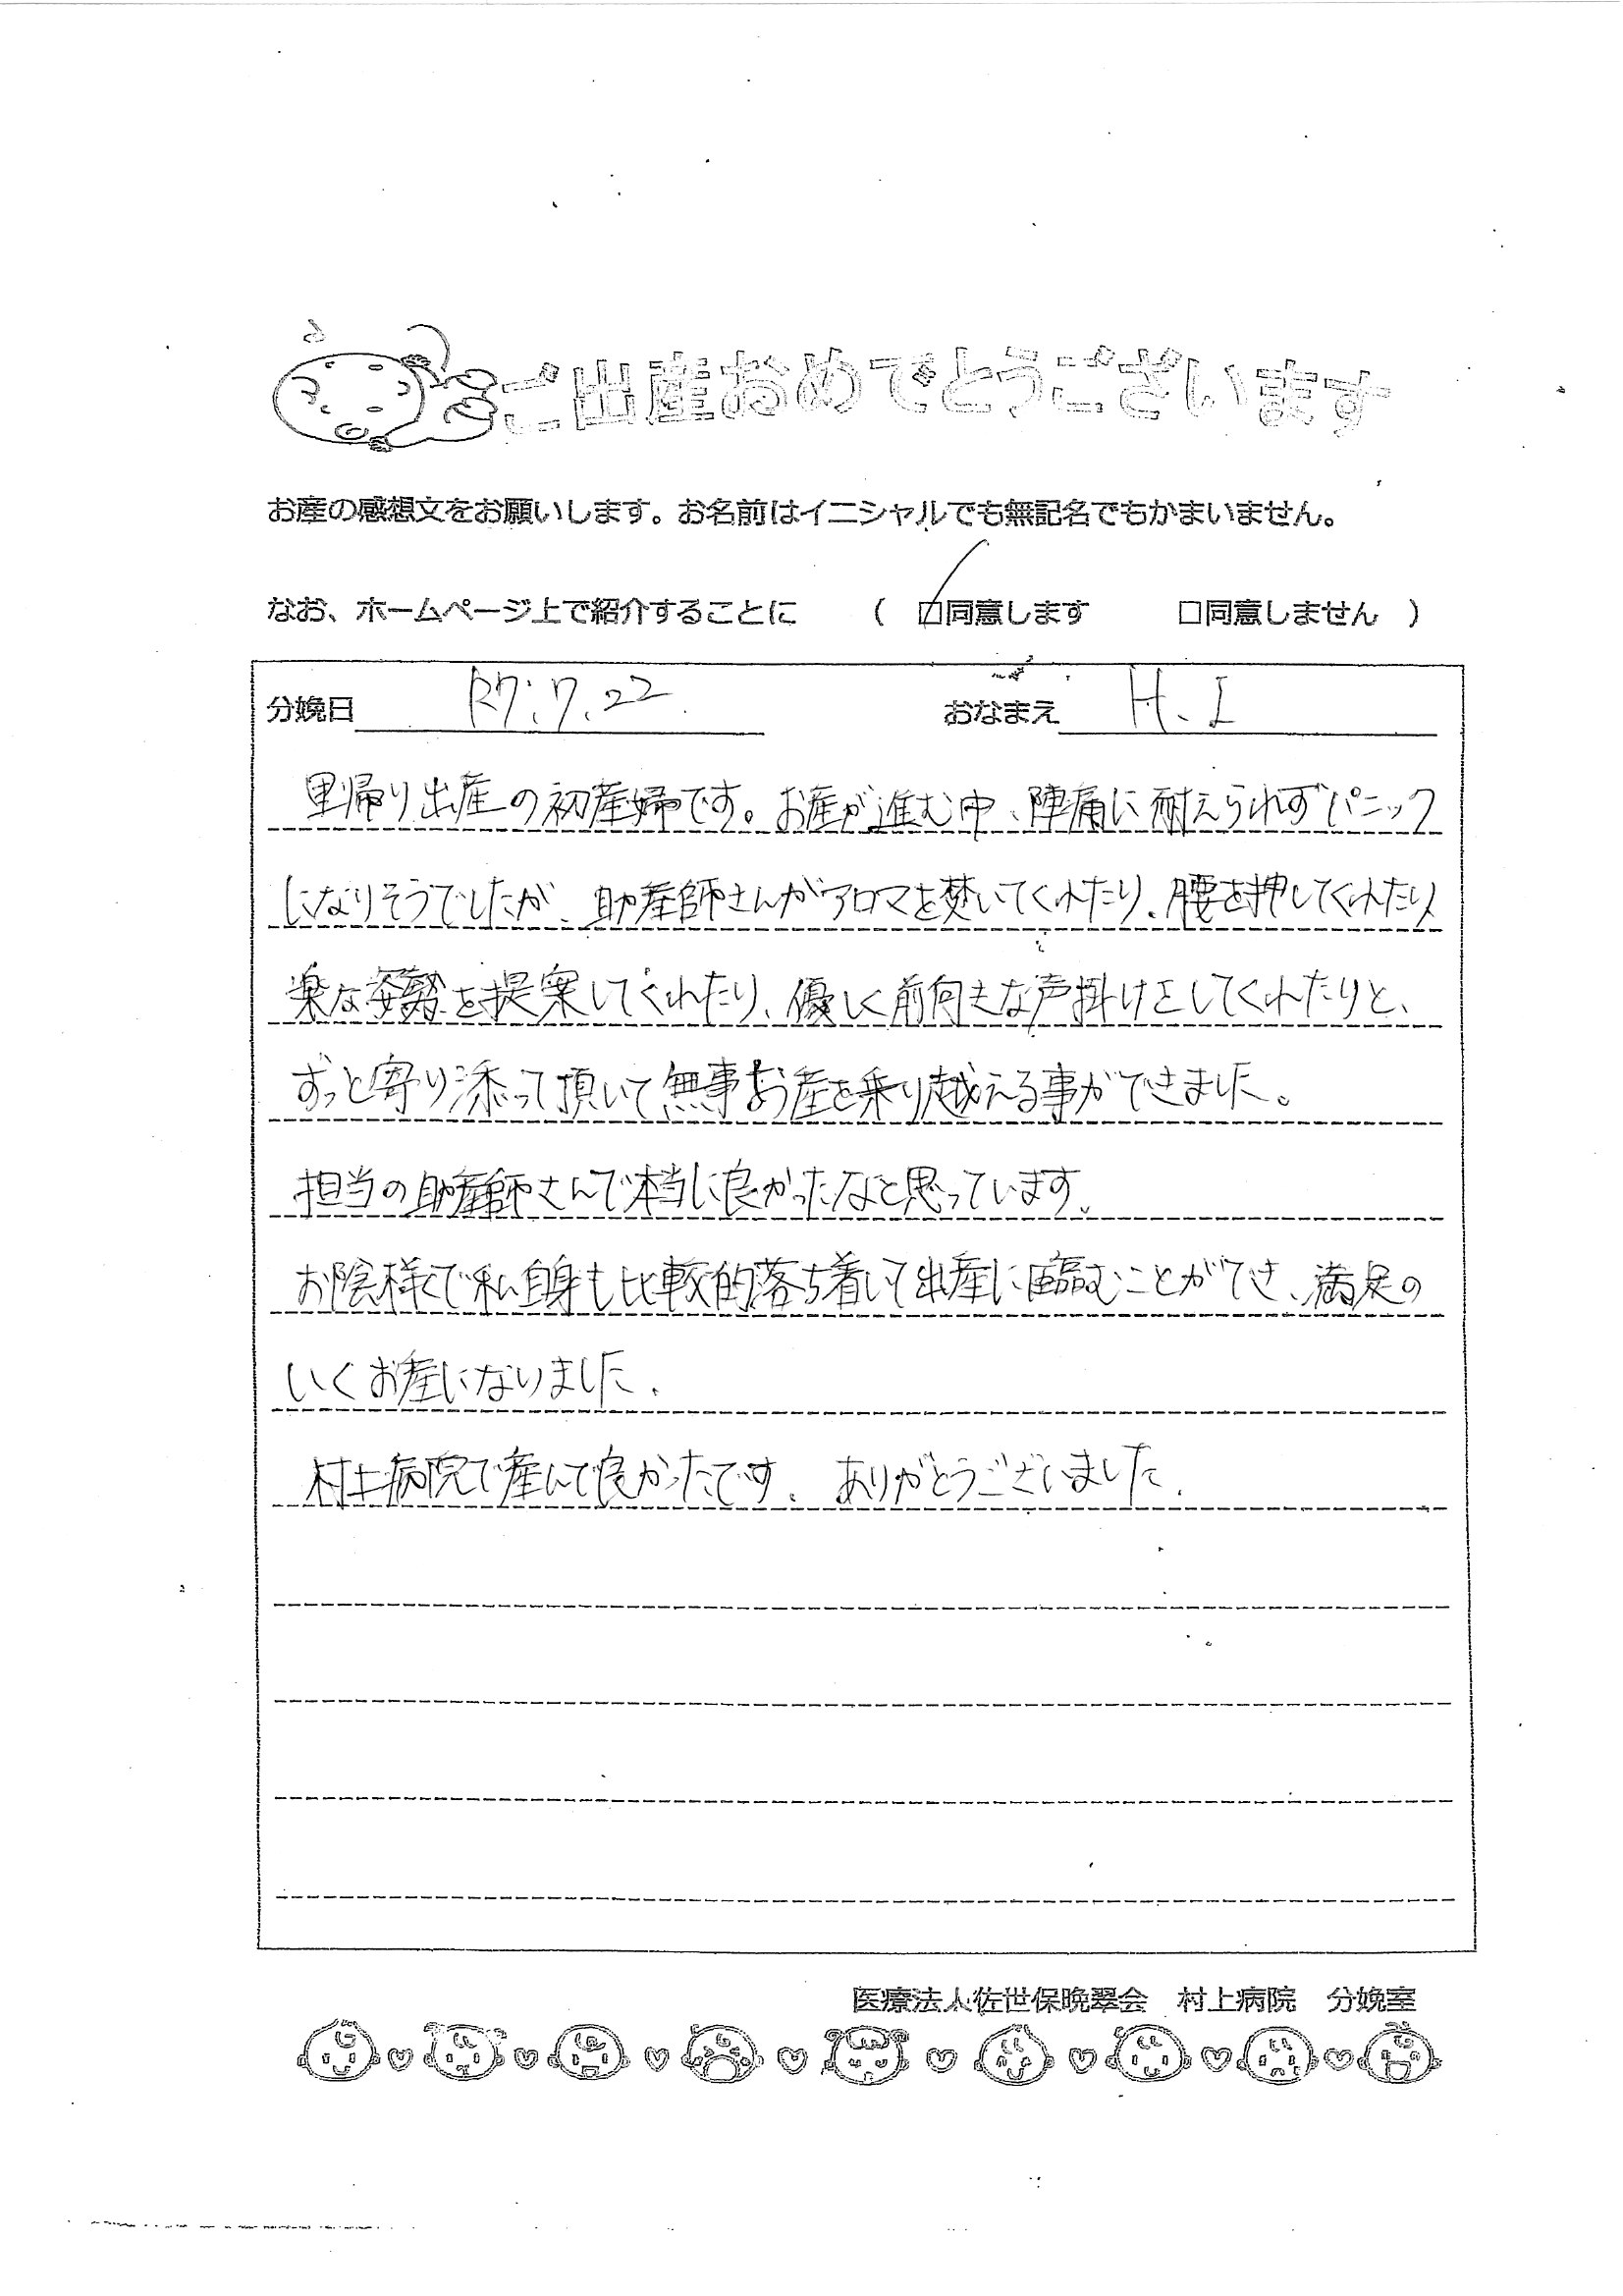 ご出産おめでとうございます
お産の感想文をお願いします。お名前はイニシャルでも無記名でもかまいません。
なお、ホームページ上で紹介することに ( ☑同意します □同意しません )
分娩日 R7.7.22 おなまえ H.I
里帰り出産の初産婦です。お産が進む中、陣痛に耐えられずパニック
になりそうでしたが、助産師さんがアロマを焚いてくれたり、腰を押してくれたり
楽な姿勢を提案してくれたり、優しく前向きな声掛けをしてくれたりと、
ずっと寄り添って頂いて無事お産を乗り越える事ができました。
担当の助産師さんで本当に良かったなと思っています。
お陰様で私自身も比較的落ち着いて出産に臨むことができ、満足の
いくお産になりました。
村上病院で産んで良かったです。ありがとうございました。
医療法人佐世保晩翠会 村上病院 分娩室